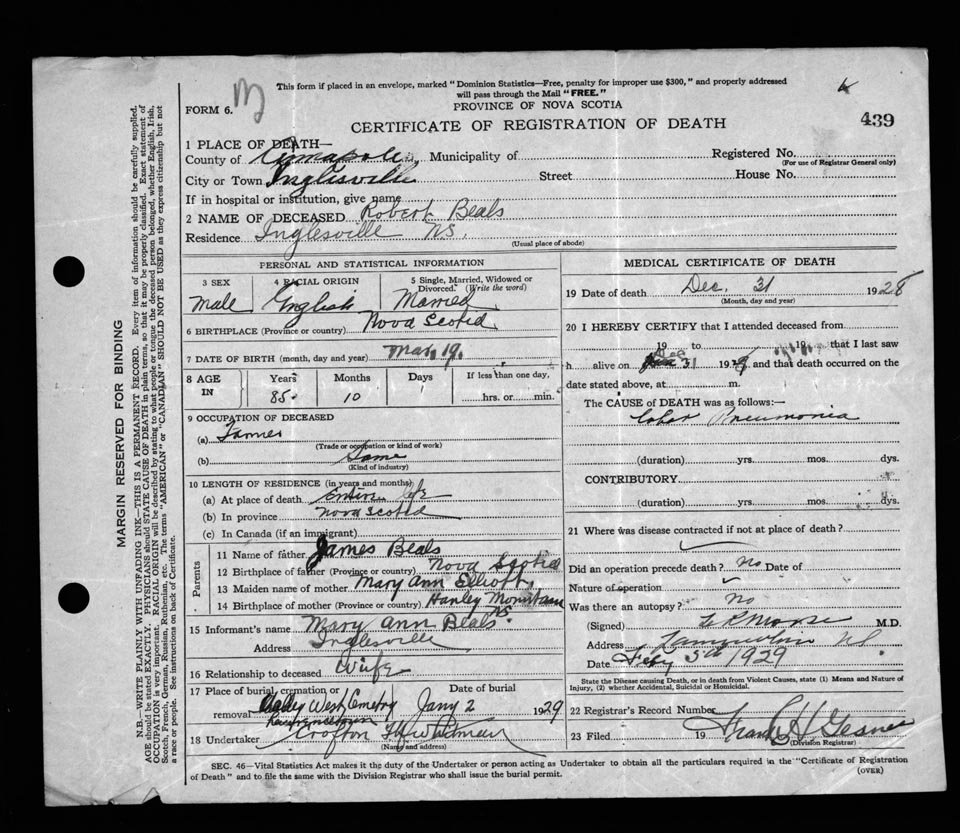 This form if placed in an envelope, marked "Dominion Statistics—Free, penalty for improper use $300," and properly addressed
will pass through the Mail "FREE."
M
FORM 6.
PROVINCE OF NOVA SCOTIA
CERTIFICATE OF REGISTRATION OF DEATH
439
1 PLACE OF DEATH—
County of Annapolis, Municipality of
Registered No.
(For use of Registrar General only)
City or Town Inglesville Street House No.
If in hospital or institution, give name
2 NAME OF DECEASED Robert Beals
Residence Inglesville N.S.
(Usual place of abode)
PERSONAL AND STATISTICAL INFORMATION
3 SEX 4 RACIAL ORIGIN 5 Single, Married, Widowed or Divorced. (Write the word)
Male English Married
6 BIRTHPLACE (Province or country) Nova Scotia
7 DATE OF BIRTH (month, day and year) Mar, 19,
8 AGE IN Years Months Days If less than one day,
85 10 hrs. or min.
9 OCCUPATION OF DECEASED
(a) Farmer
(Trade or occupation or kind of work)
(b) Same
(Kind of industry)
10 LENGTH OF RESIDENCE (in years and months)
(a) At place of death Entire life
(b) In province Nova Scotia
(c) In Canada (if an immigrant)
Parents
11 Name of father James Beals
12 Birthplace of father (Province or country) Nova Scotia
13 Maiden name of mother Mary Ann Elliott
14 Birthplace of mother (Province or country) Hanley Mountain
N.S.
15 Informant's name Mary Ann Beals
Address Inglesville
16 Relationship to deceased Wife
17 Place of burial, cremation or removal Date of burial
West Cemetry Jany 2 1929
Lawrencetown
18 Undertaker Crofton Whitman
(Name and address)
MEDICAL CERTIFICATE OF DEATH
19 Date of death Dec. 31 1928
(Month, day and year)
20 I HEREBY CERTIFY that I attended deceased from
19 to 19 that I last saw
h alive on Dec 31 19 and that death occurred on the
date stated above, at m.
The CAUSE of DEATH was as follows:—
Lobar Pneumonia
(duration) yrs. mos. dys.
CONTRIBUTORY
(duration) yrs. mos. dys.
21 Where was disease contracted if not at place of death?
Did an operation precede death? no Date of
Nature of operation
Was there an autopsy? no
(Signed) Morse M.D.
Address N.S.
Date 1929
State the Disease causing Death, or in death from Violent Causes, state (1) Means and Nature of
Injury, (2) whether Accidental, Suicidal or Homicidal.
22 Registrar's Record Number
23 Filed 19 Frank H Gesner
(Division Registrar)
SEC. 46—Vital Statistics Act makes it duty of the Undertaker or person acting as Undertaker to obtain all the particulars required in the "Certificate of Registration
of Death" and to file the same with the Division Registrar who shall issue the burial permit.
(OVER)
MARGIN RESERVED FOR BINDING
N.B.—WRITE PLAINLY WITH UNFADING INK—THIS IS A PERMANENT RECORD. Every item of information should be carefully supplied.
AGE should be stated EXACTLY. PHYSICIANS should STATE CAUSE OF DEATH in plain terms, so that it may be properly classified. Exact statement of
OCCUPATION is very important. RACIAL ORIGIN will be described by stating to what people or tongue the deceased person belonged, whether English, Irish,
Scotch, French, German, Russian, Ruthenian, etc. The terms "AMERICAN" or "CANADIAN" SHOULD NOT BE USED as they express citizenship but not
a race or people. See instructions on back of Certificate.